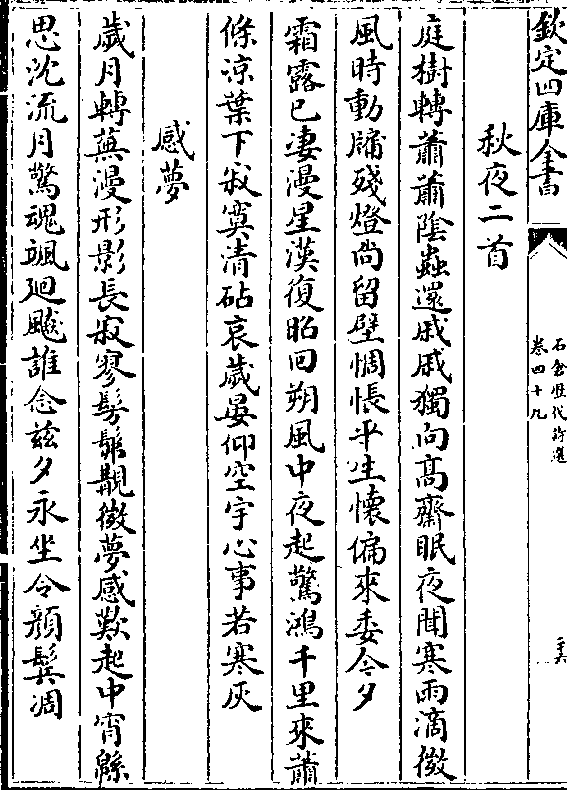 欽定四庫全書
石倉歷代詩選
卷四十九
秋夜二首
庭樹轉蕭蕭陰蟲還戚戚獨向髙齋眠夜聞寒雨滴微
風時動牖殘燈尚留壁惆悵平生懷偏來委今夕
霜露已凄漫星漢復昭回朔風中夜起驚鴻千里來蕭
條涼葉下寂寞清砧哀歲晏仰空宇心事若寒灰
感夢
歲月轉蕪漫形影長寂寥髣髴覯微夢感歎起中宵緜
思沈流月驚魂颯廻飈誰念兹夕永坐令顔鬢凋